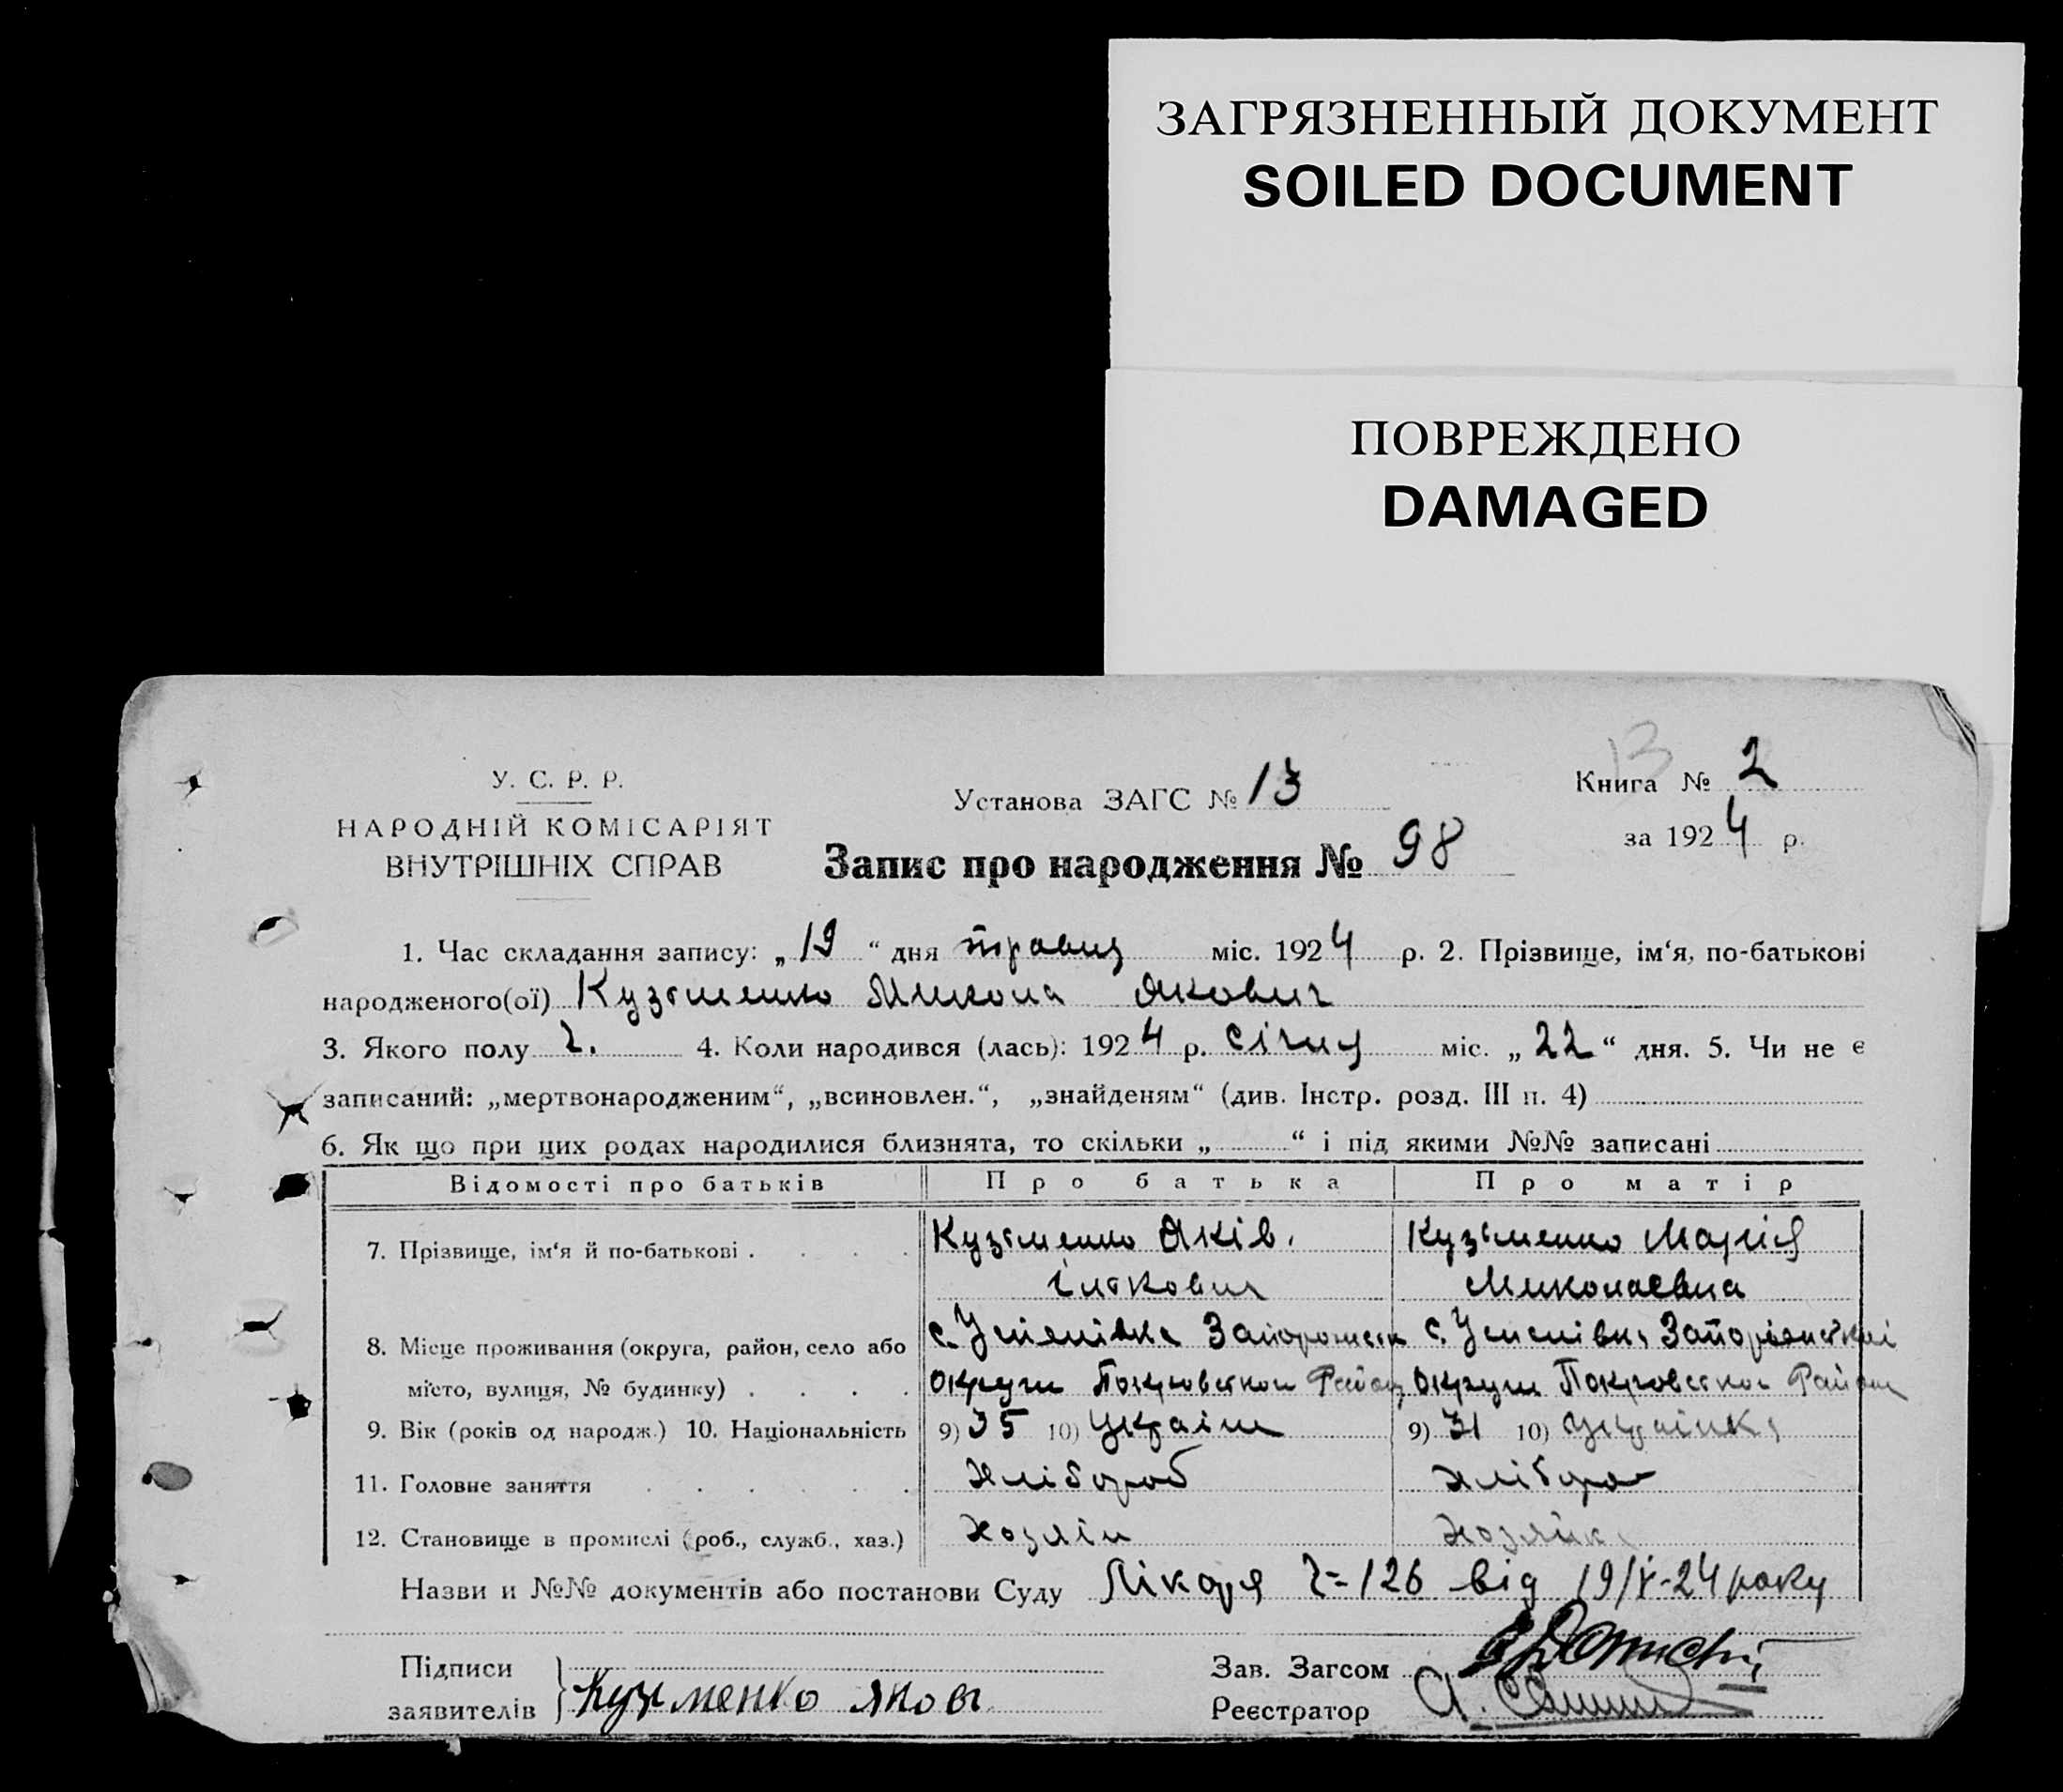 ЗАГРЯЗНЕННЫЙ ДОКУМЕНТ
SOILED DOCUMENT
ПОВРЕЖДЕНО
DAMAGED
13
У. С. Р. Р.
НАРОДНІЙ КОМІСАРІЯТ
ВНУТРІШНІХ СПРАВ
Установа ЗАГС № 13
Книга № 2
за 1924 р.
Запис про народження № 98
1. Час складання запису: „ 19 “ дня травня міс. 1924 р. 2. Прізвище, ім‘я, по-батькові
народженого(ої) Кузьменко Микола Якович
3. Якого полу ч. 4. Коли народився (лась): 1924 р. січня міс. „ 22 “ дня. 5. Чи не є
записаний: „мертвонародженим“, „всиновлен.“, „знайденям“ (див. Інстр. розд. III п. 4)
6. Як що при цих родах народилися близнята, то скільки „ “ і під якими №№ записані
Відомості про батьків Про батька Про матір
7. Прізвище, ім‘я й по-батькові Кузьменко Яків. Кузьменко Марія
Миколаевна
8. Місце проживання (округа, район, село або с. Успенівка с. Успенівка
місто, вулиця, № будинку) округи Покровського Району округи Покровського Району
9. Вік (років од народж.) 10. Національність 9) 35 10) Україн 9) 31 10) Українка
11. Головне заняття Хлібороб Хлібороб
12. Становище в промислі (роб., служб., хаз.) Хозяін Хозяйка
Назви и №№ документів або постанови Суду Лікаря ч=126 від 19/V-24 року
Підписи
заявителів Кузменко Яков
Зав. Загсом
Реєстратор